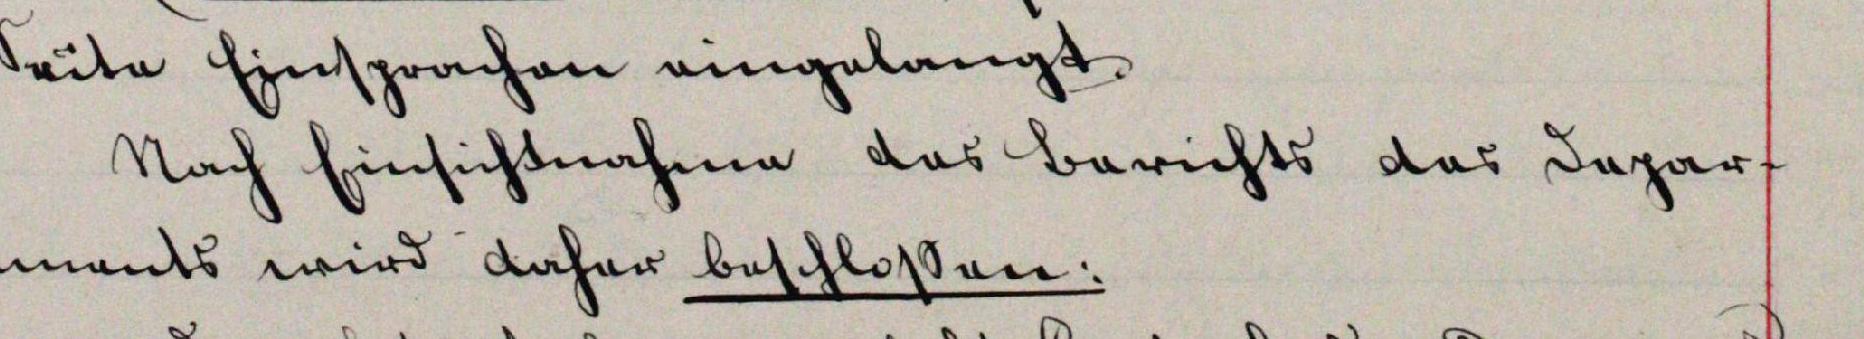 Seite Einsprachen eingelangt.
Nach Einsichtnahme des Berichts des Depar-
ments wird daher beschlossen: